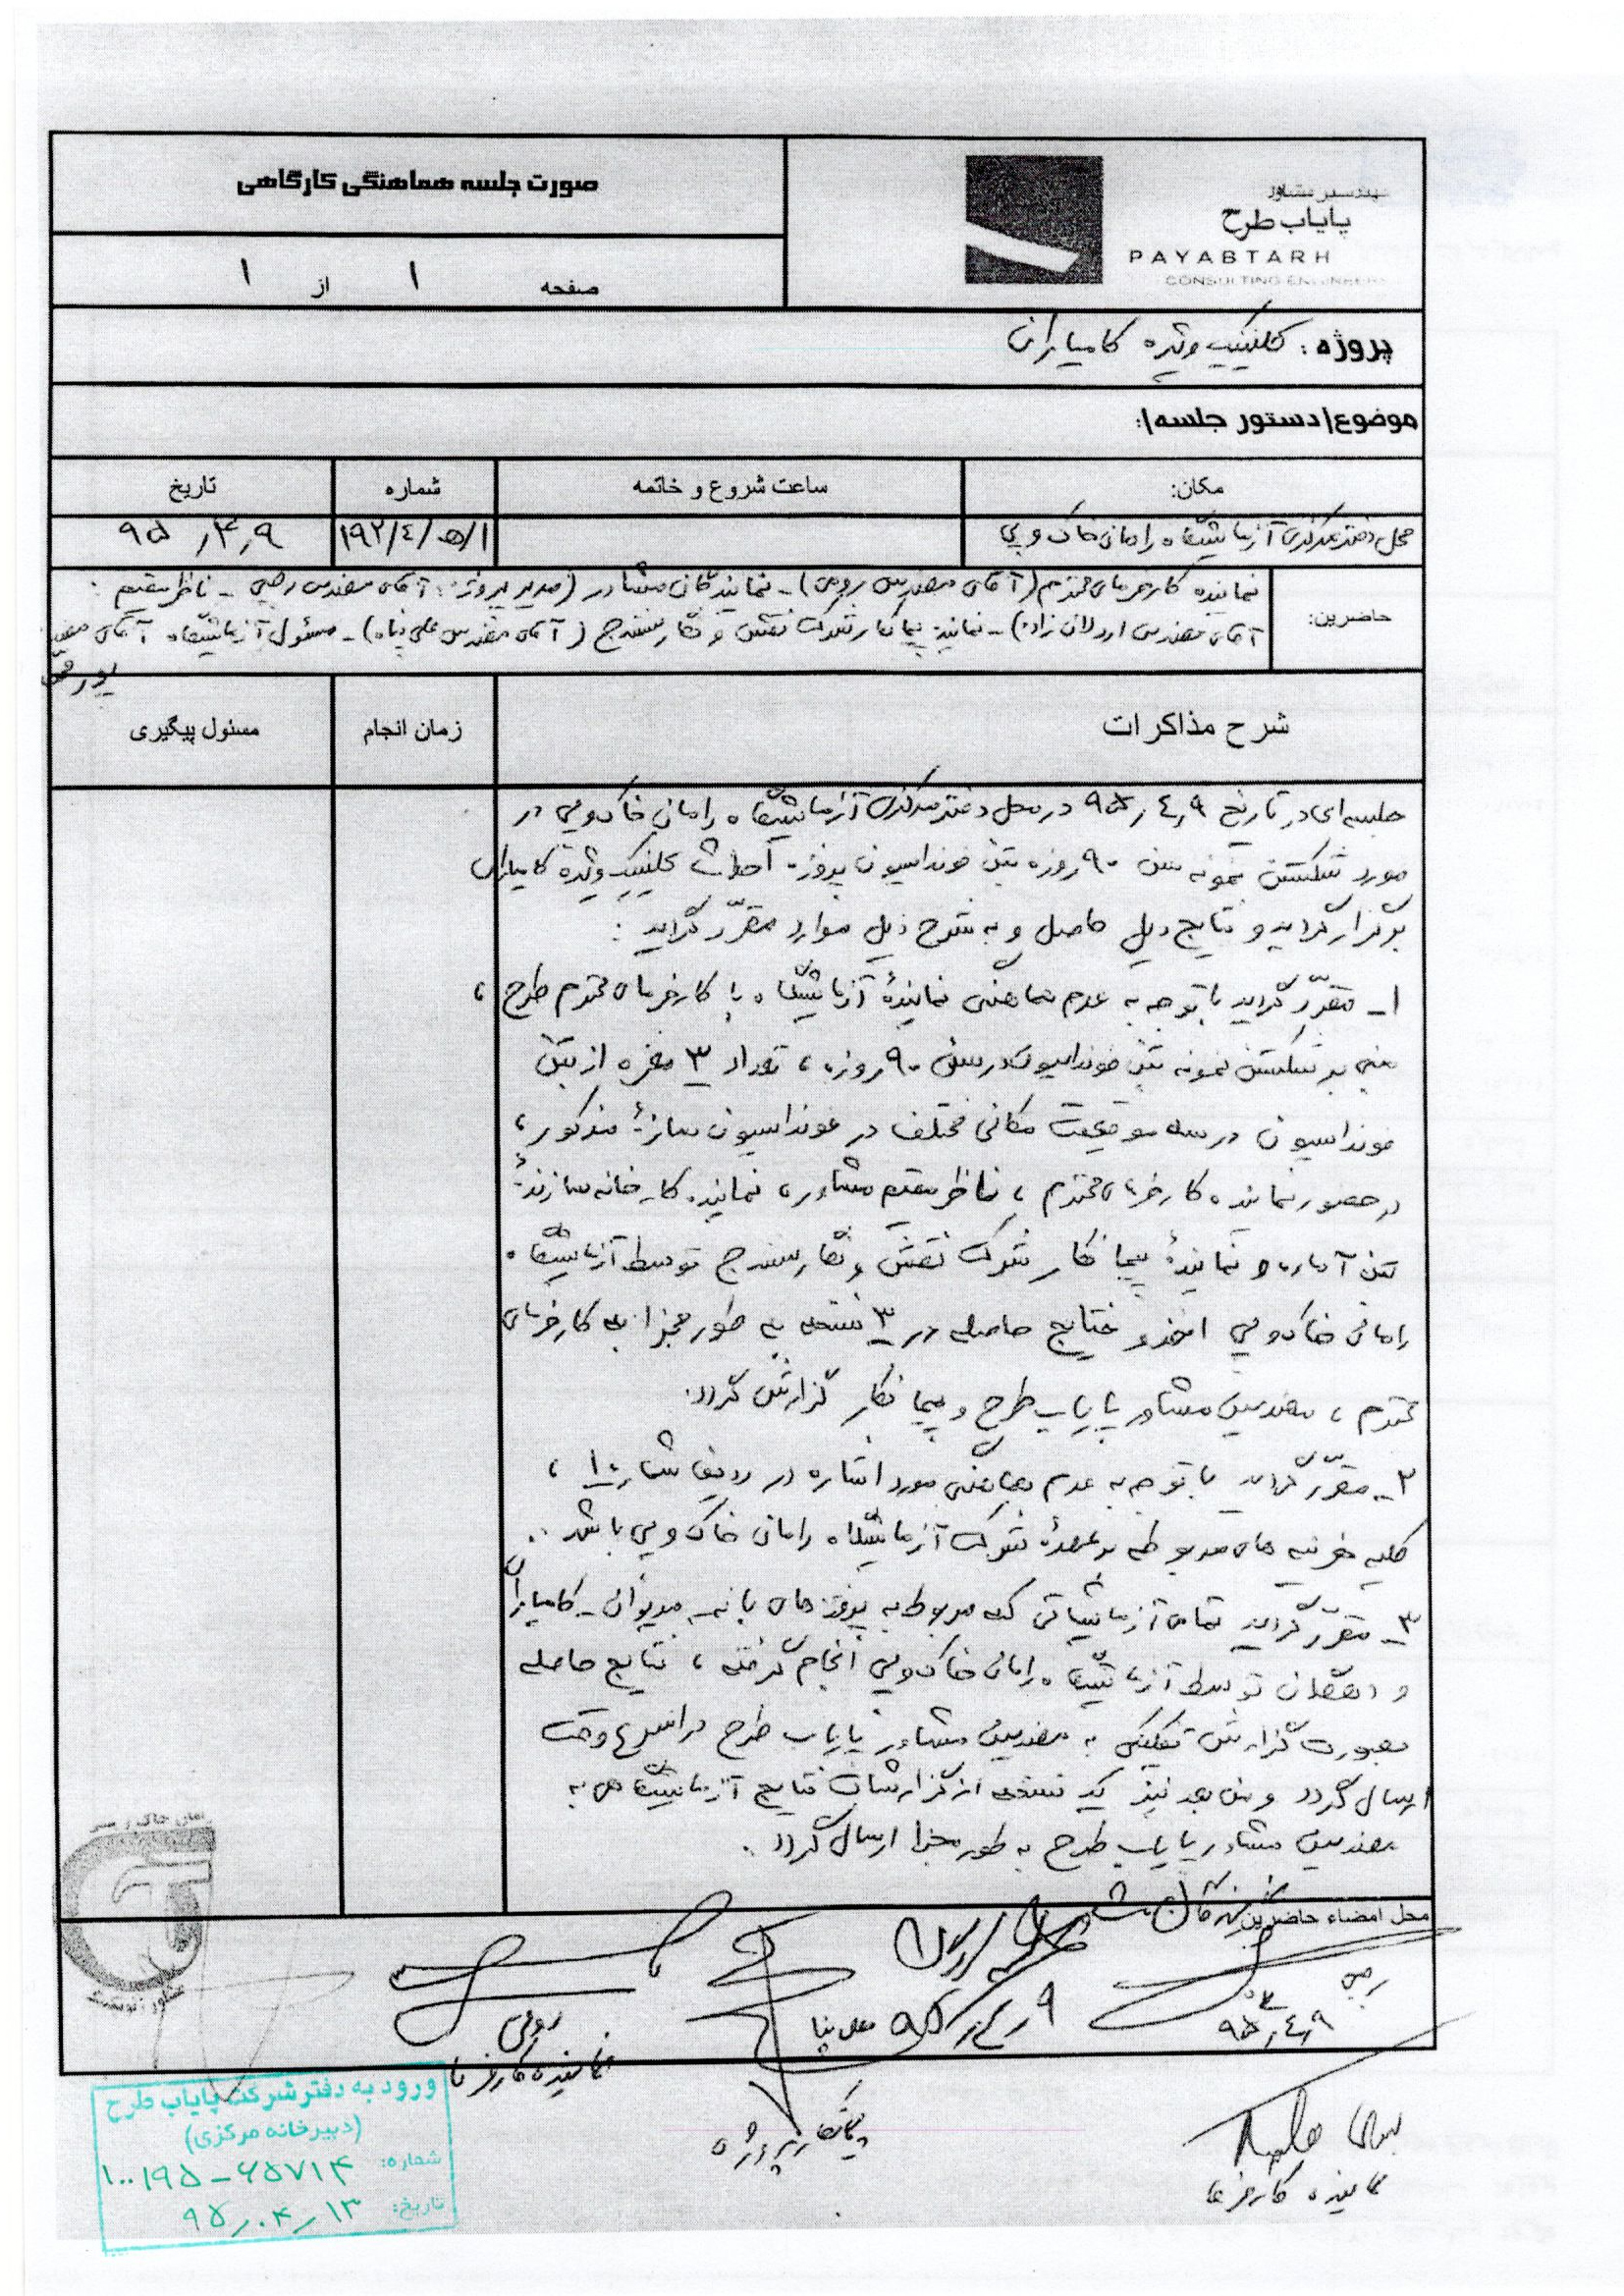 صورت جلسه هماهنگی کارگاهی
مهندسین مشاور
پایاب طرح
PAYABTARH
CONSULTING ENGINEERS
صفحه ۱ از ۱
پروژه : کلینیک ویژه کامیاران
موضوع/دستور جلسه/:
مکان: ساعت شروع و خاتمه شماره تاریخ
محل دفتر مرکزی آزمایشگاه رامان خاک و پی ۱۹۲/٤/ه/۱ ۹۵٫۴٫۹
حاضرین: نماینده کارفرمای محترم (آقای مهندس رومی) - نمایندگان مشاور (مدیر پروژه: آقای مهندس رجبی - ناظر مقیم :
آقای مهندس اردلان زاده) - نماینده پیمانکار شرکت نقش و نگار سنندج (آقای مهندس علی پناه) - مسئول آزمایشگاه آقای مهندس
شرح مذاکرات زمان انجام مسئول پیگیری
جلسه ای در تاریخ ۹۵٫٤٫۹ در محل دفتر مرکزی آزمایشگاه رامان خاک و پی در
مورد شکستن نمونه سن ۹۰ روزه بتن فونداسیون پروژه احداث کلینیک ویژه کامیاران
برگزار گردید و نتایج ذیل حاصل و به شرح ذیل موارد مقرّر گردید :
۱- مقرّر گردید با توجه به عدم هماهنگی نمایندهٔ آزمایشگاه با کارفرمای محترم طرح ،
مبنی بر شکستن نمونه بتن فونداسیون در سن ۹۰ روزه ، تعداد ۳ مغزه از بتن
فونداسیون در سه موقعیت مکانی مختلف در فونداسیون سازهٔ مذکور ،
در حضور نماینده کارفرمای محترم ، ناظر مقیم مشاور ، نماینده کارخانه سازندهٔ
بتن آماده و نمایندهٔ پیمانکار شرکت نقش و نگار سنندج توسط آزمایشگاه
رامان خاک و پی اخذ و نتایج حاصله در ۳ نسخه به طور مجزا به کارفرمای
محترم ، مهندسین مشاور پایاب طرح و پیمانکار گزارش گردد.
۲- مقرّر گردید با توجه به عدم هماهنگی مورد اشاره در ردیف شماره ۱ ،
کلیه هزینه های مربوطه بر عهدهٔ شرکت آزمایشگاه رامان خاک و پی باشد .
۳- مقرّر گردید تمامی آزمایشاتی که مربوط به پروژه های بانه - مریوان - کامیاران
و دهگلان توسط آزمایشگاه رامان خاک و پی انجام گرفته ، نتایج حاصله
بصورت گزارش تفکیکی به مهندسین مشاور پایاب طرح در اسرع وقت
ارسال گردد و من بعد نیز یک نسخه از گزارشات نتایج آزمایشگاهی به
مهندسین مشاور پایاب طرح به طور مجزا ارسال گردد .
محل امضاء حاضرین
رجبی
۹۵٫٤٫۹
۹۵٫٤٫۹
علی پناه
رومی
نماینده کارفرما
پیمانکار پروژه
نماینده کارفرما
ورود به دفتر شرکت پایاب طرح
(دبیرخانه مرکزی)
شماره: ۱۰۰۱۹۵-۶۵۷۱۴
تاریخ: ۹۵٫۰۴٫۱۳